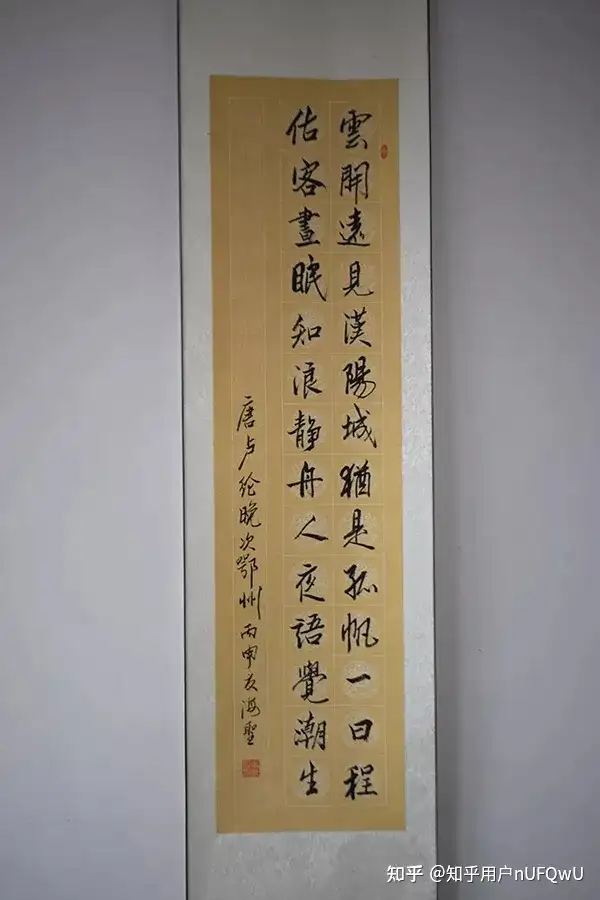 雲開遠見漢陽城猶是孤帆一日程
估客晝眠知浪靜舟人夜語覺潮生
唐卢纶晚次鄂州丙申友海聖
知乎 @知乎用户nUFQwU